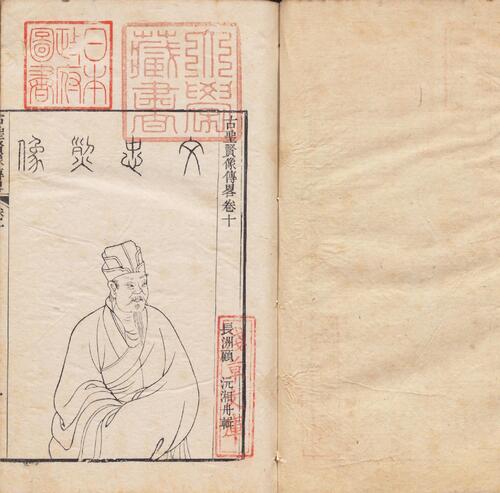 日本
政府
圖書
藏書
古聖賢像傳畧卷十
文忠烈像
長洲顧 沅湘舟輯
淺草文庫
古聖賢像傳畧 卷十